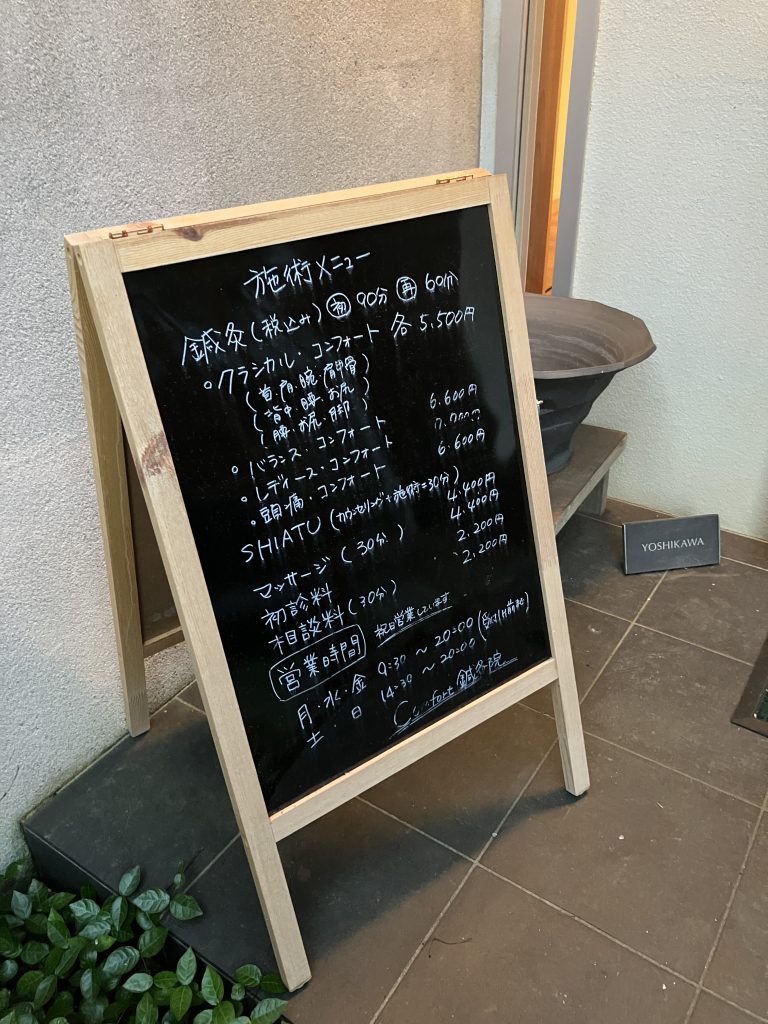 施術メニュー
鍼灸(税込み) 初 90分 再 60分
クラシカル・コンフォート 各 5.500円
(首・肩・腕・肩甲骨)
(背中・腰・お尻)
(腰・お尻・脚)
バランス・コンフォート 6.600円
レディース・コンフォート 7.700円
頭痛・コンフォート 6.600円
SHIATU (カウンセリング+施術=30分) 4.400円
マッサージ (30分) 4.400円
初診料 2.200円
相談料 (30分) 2.200円
営業時間 祝日営業しています
月・水・金 9:30 〜 20:00 (受付1H前迄)
土 日 14:30 〜 20:00
Comfort 鍼灸院
YOSHIKAWA